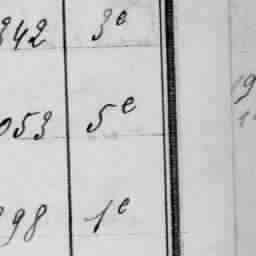 342 3e
053 5e
98 1e